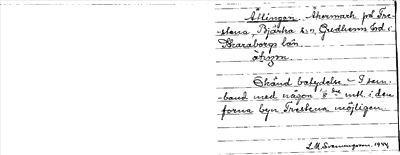 Åttingen. Åkermark på Tre-
stena, Bjärka s:n, Gudhems hd i
Skaraborgs län
åtiŋən
Okänd betydelse - I sam-
band med någon "8 del" mtl. i den
forna byn Trestena möjligen.
L M Svenungsson. 1944